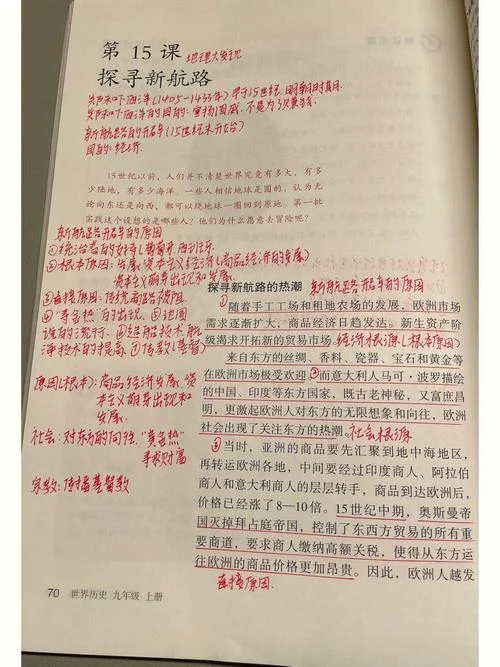 第 15 课 地理大发现
探寻新航路
郑和下西洋(1405-1433年)早于15世纪,明朝时期
郑和下西洋的目的:宣扬国威,不是为了
新航路的开辟(15世纪末开始)
目的:经济
15世纪以前,人们并不清楚世界究竟有多大,有多
少陆地,有多少海洋。一些人相信地球是圆的,认为无
论向东还是向西,都可以绕地球一圈回到原地。第一批
实践这个设想的是哪些人?他们为什么愿意去冒险呢?
新航路开辟的原因
①统治者的支持(葡萄牙、西班牙
②根本原因:发展资本主义经济(商品经济的发展)
资本主义萌芽出现和发展
③直接原因:传统商路受阻
④“寻金热”的出现、⑤地圆
说的流行、⑥造船技术、航
海技术的提高、⑦传教(基督)
原因(根本):商品经济发展、资
本主义萌芽出现和
发展
社会:对东方的向往,“寻金热”
寻求财富
宗教:传播基督教
探寻新航路的热潮 新航路开辟的原因
①随着手工工场和租地农场的发展,欧洲市场
需求逐渐扩大,商品经济日趋发达。新生资产阶
级渴求开拓新的贸易市场。经济根源(根本原因)
来自东方的丝绸、香料、瓷器、宝石和黄金等
在欧洲市场极受欢迎。②而意大利人马可·波罗描绘
的中国、印度等东方国家,既古老神秘,又富庶昌
明,更激起欧洲人对东方的无限想象和向往,欧洲
社会出现了关注东方的热潮。社会根源
③当时,亚洲的商品要先汇聚到地中海地区,
再转运欧洲各地,中间要经过印度商人、阿拉伯
商人和意大利商人的层层转手,商品到达欧洲后,
价格已经涨了8—10倍。15世纪中期,奥斯曼帝
国灭掉拜占庭帝国,控制了东西方贸易的所有重
要商道,要求商人缴纳高额关税,使得从东方运
往欧洲的商品价格更加昂贵。因此,欧洲人越发
直接原因
70 世界历史 九年级 上册